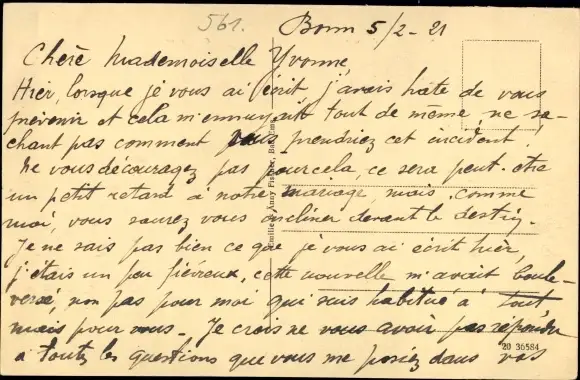 561.
Bonn 5/2-21
Chère Mademoiselle Yvonne
Hier, lorsque je vous ai écrit j'avais hate de vous
prévenir et cela m'ennuyait tout de même, ne sa-
chant pas comment vous prendriez cet incident.
Ne vous découragez pas pour cela, ce sera peut-être
un petit retard à notre mariage mais comme
moi, vous saurez vous incliner devant le destin.
Je ne sais pas bien ce que je vous ai écrit hier,
j'étais un peu fiévreux, cette nouvelle m'avait boule-
versé, non pas pour moi qui suis habitué à tout
mais pour vous - Je crois ne vous avoir pas répondu
à toutes les questions que vous me posiez dans vos
Emilie Anny Fisher,
20 36584